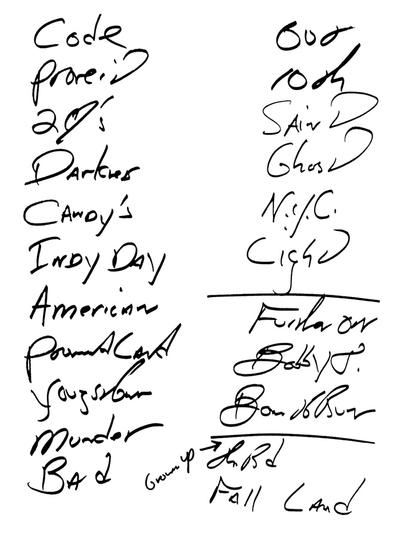 Code
Prove it
Darkness
Candy's
Indy Day
American
Youngstown
Murder
Bad
Out
10th
Saint
Ghost
N.Y.C.
Light
Further on
Bobby J.
Born to Run
Grown up
Th Rd
Fall Land